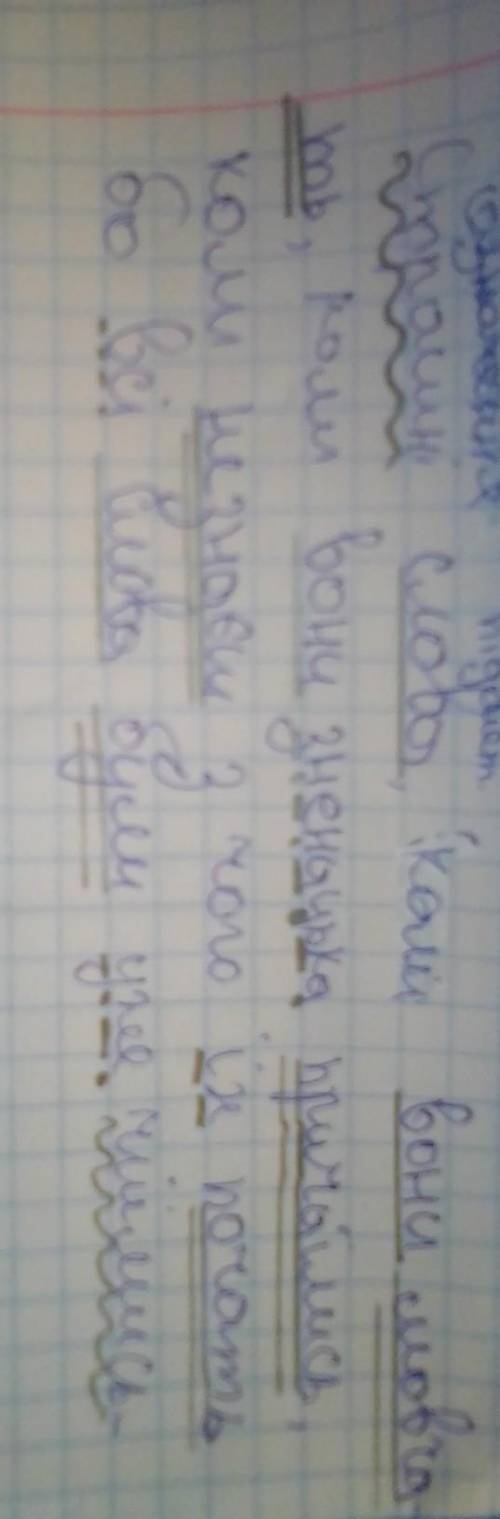 підмет
Страшні слова, коли вони мовча
ть, коли вони зненацька причаїлись,
коли не знаєш з чого їх почать
бо всі слова були уже чиїмись.